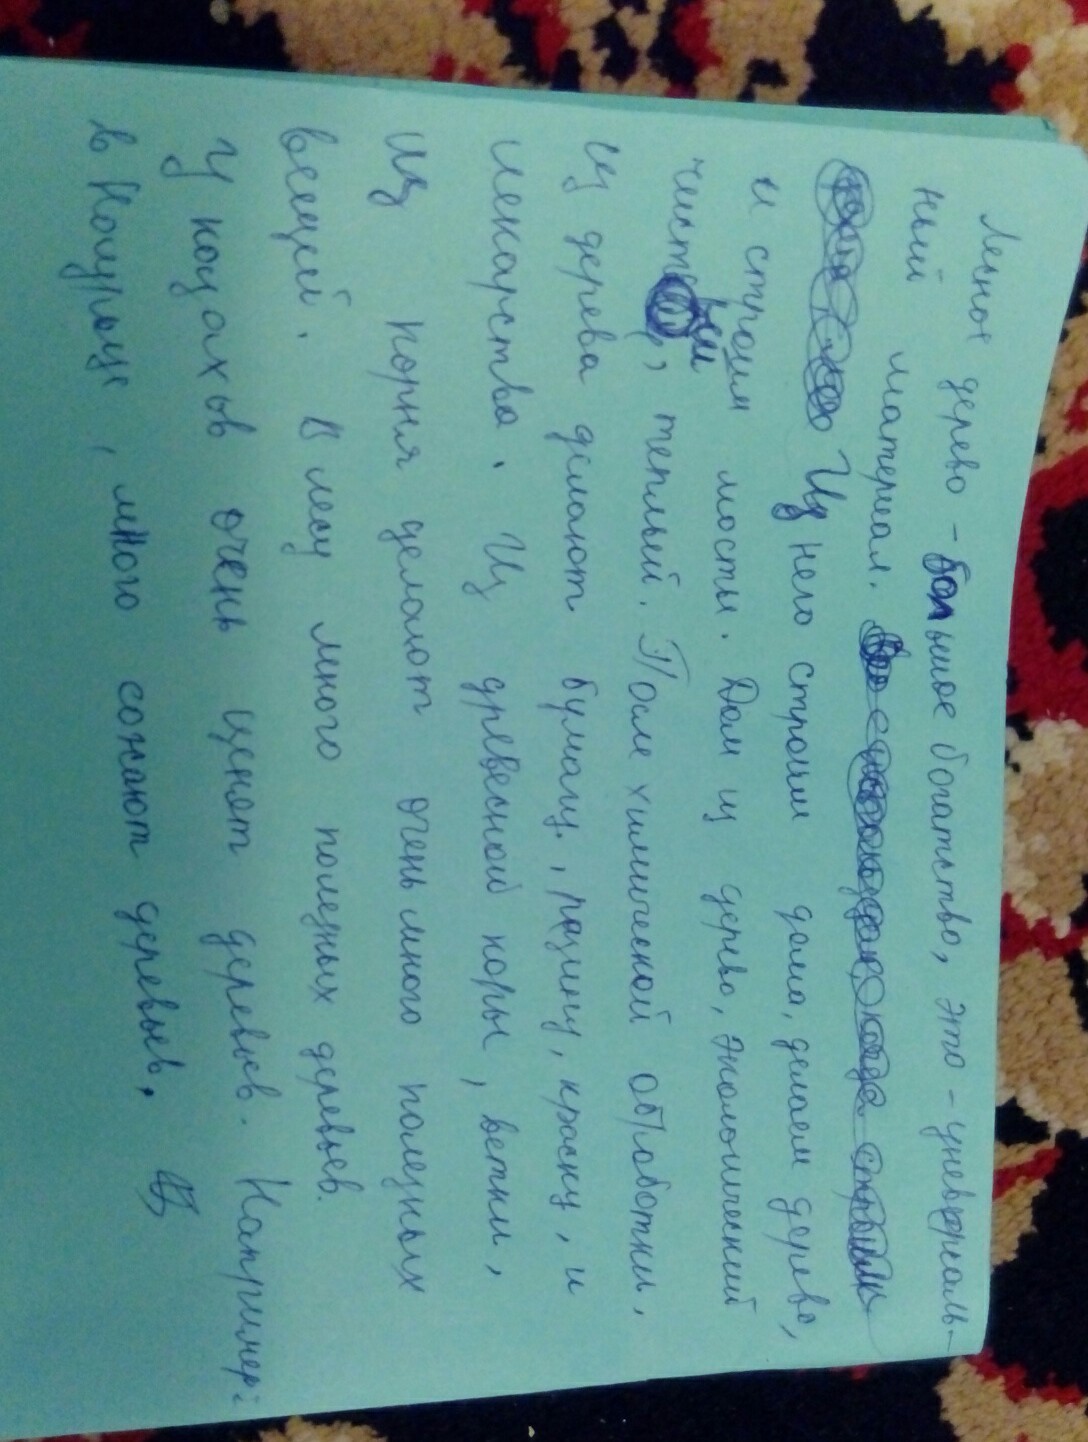 Лесное дерево - большое богатство, это - униварсаль-
ный материал.
Из него строим дома, делаем дерево,
и строим мосты. Дом из дерево, экологический
чистый, теплый. После химической обработки,
из дерева делают бумагу, резину, краску, и
лекарство. Из древесной коры, ветки,
Из корня делают очень много полезных
вещей. В лесу много полезных деревьев.
У казахов очень ценят деревьев. Например:
в Наурызе, много сожают деревьев,